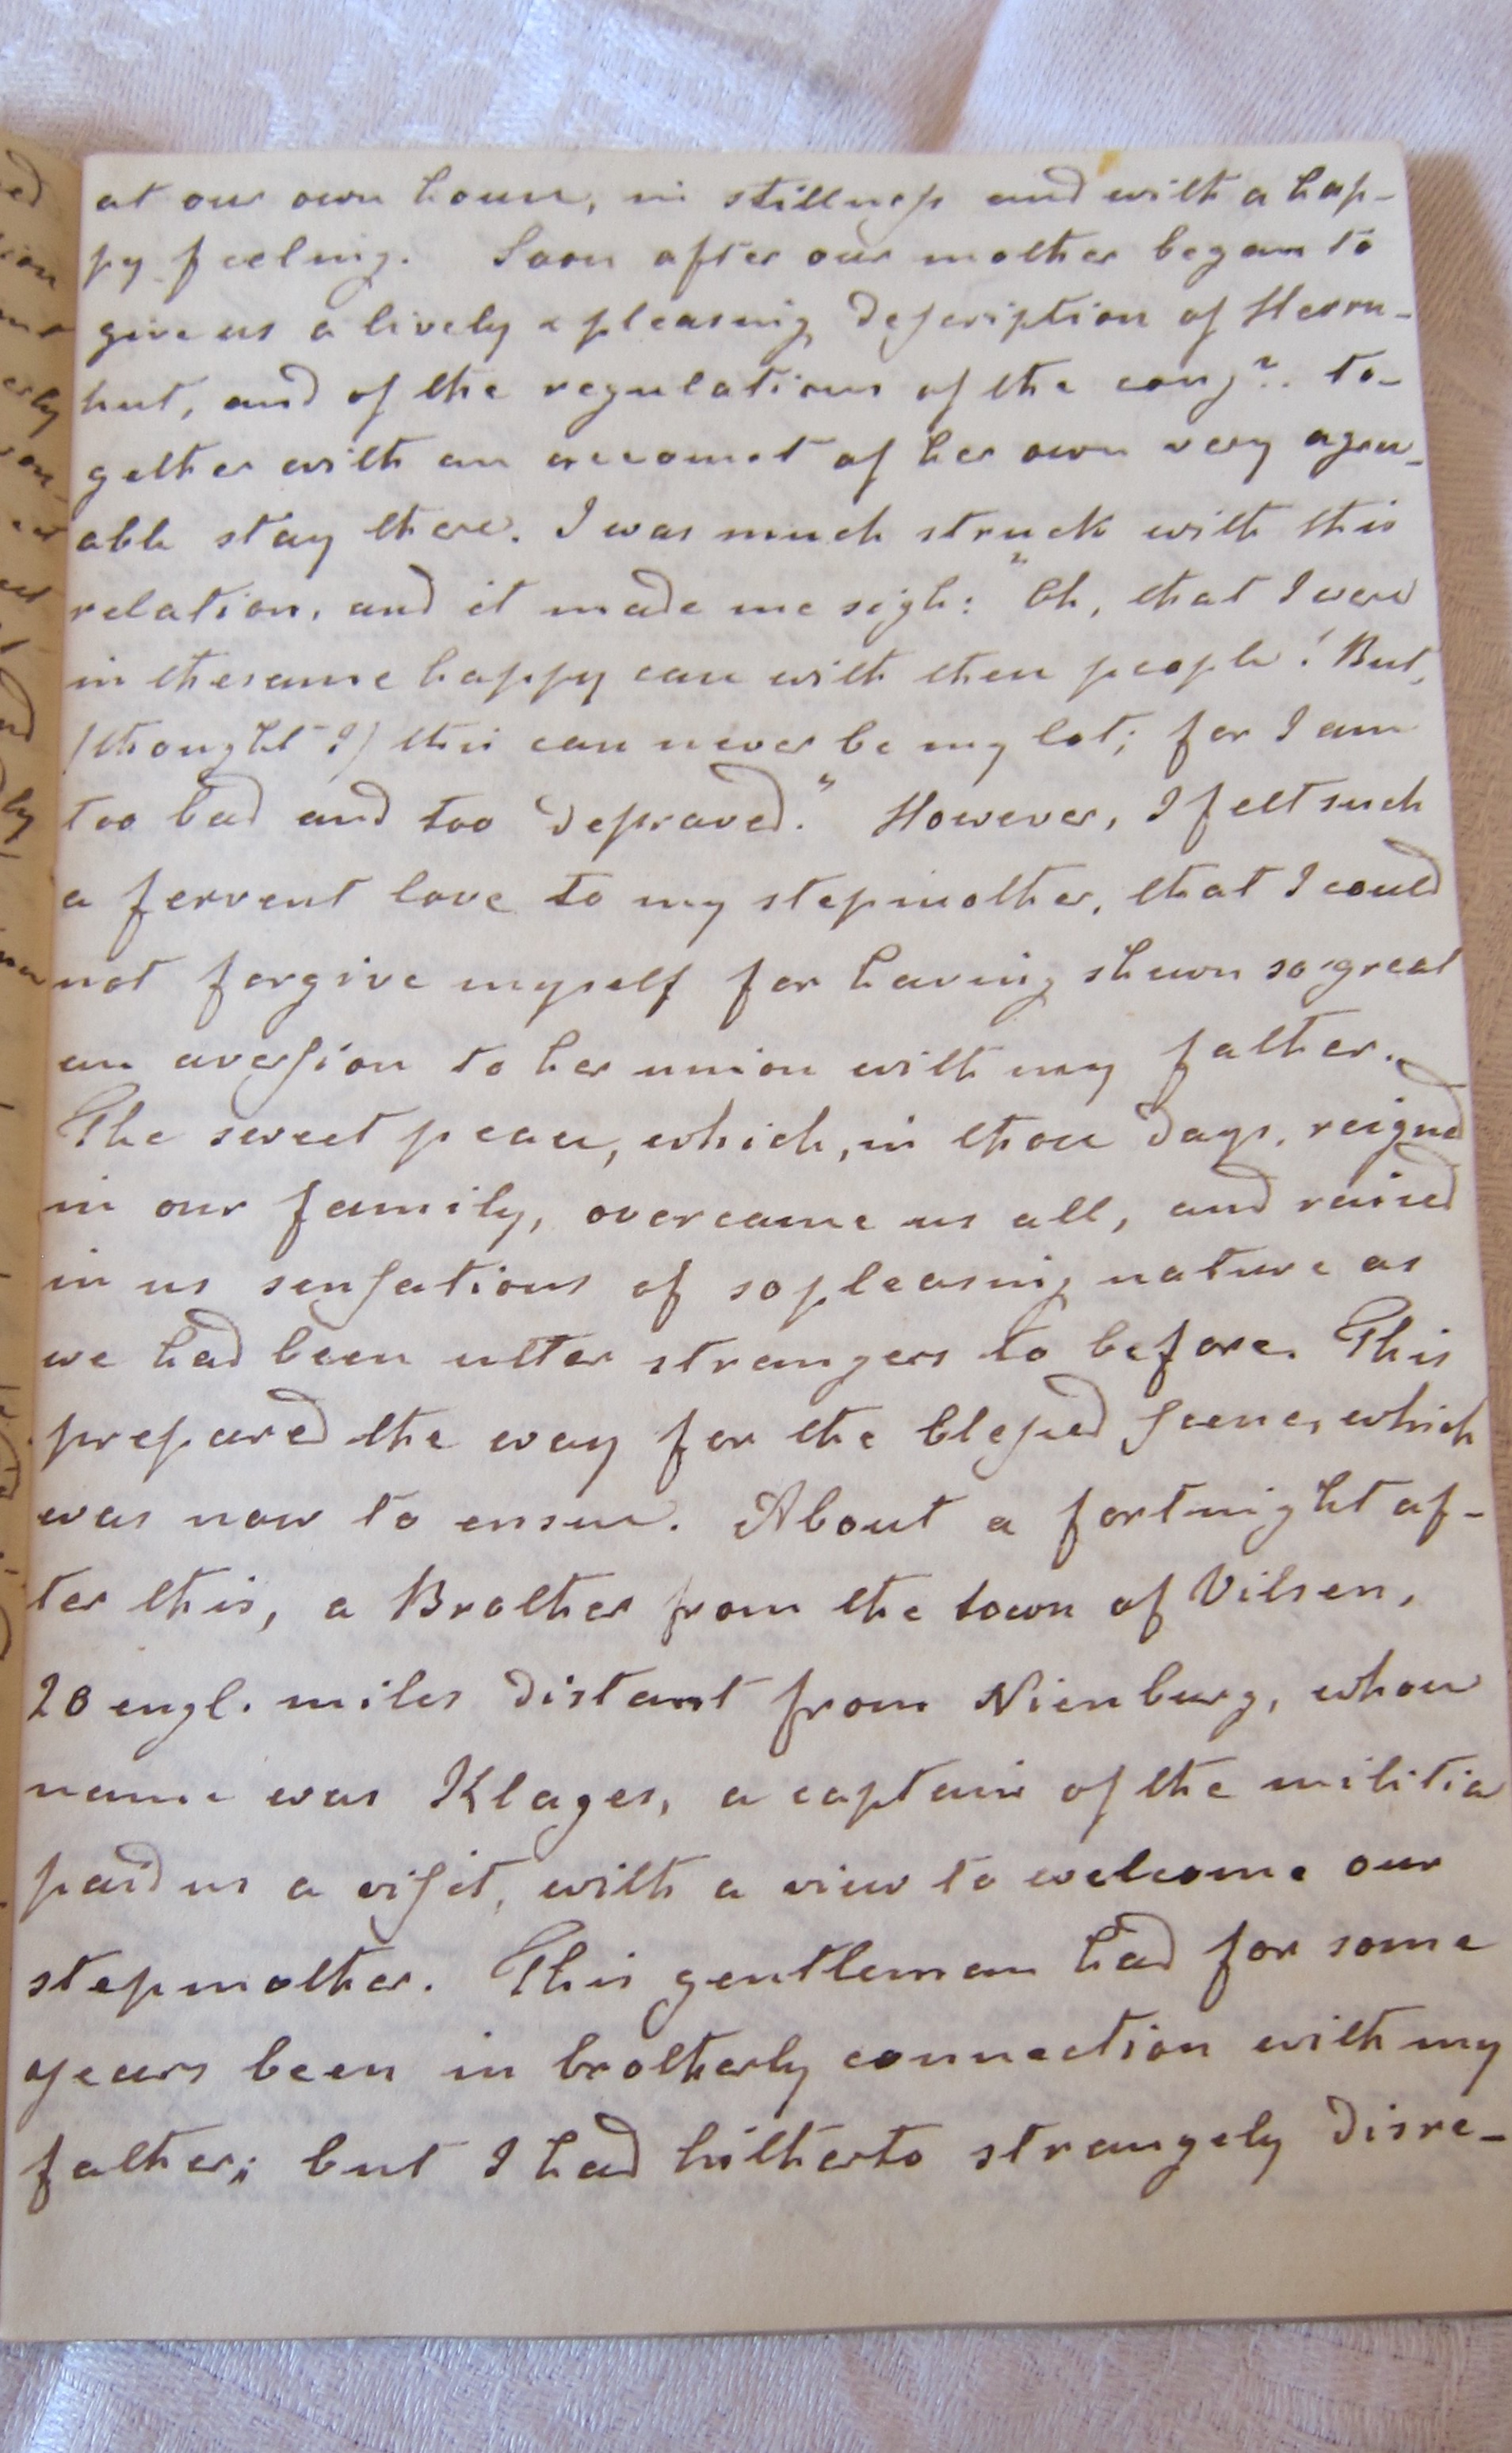 at our own house, in stillness and with a hap-
py feeling. Soon after our mother began to
give us a lively & pleasing description of Herrn-
hut, and of the regulations of the congn. to-
gether with an account of her own very agree-
able stay there. I was much struck with this
relation, and it made me sigh: "Oh, that I were
in the same happy case with these people! But,
(thought I) this can never be my lot; for I am
too bad and too depraved." However, I felt such
a fervent love to my stepmother, that I could
not forgive myself for having shewn so great
an aversion to her union with my father.
The sweet peace, which, in those days, reigned
in our family, overcame us all, and raised
in us sensations of so pleasing nature as
we had been utter strangers to before. This
prepared the way for the blessed scene, which
was now to ensue. About a fortnight af-
ter this, a Brother from the town of Vilsen,
20 engl. miles distant from Nienburg, whose
name was Klages, a captain of the militia
paid us a visit, with a view to welcome our
stepmother. This gentleman had for some
years been in brotherly connection with my
father; but I had hitherto strangely disre-